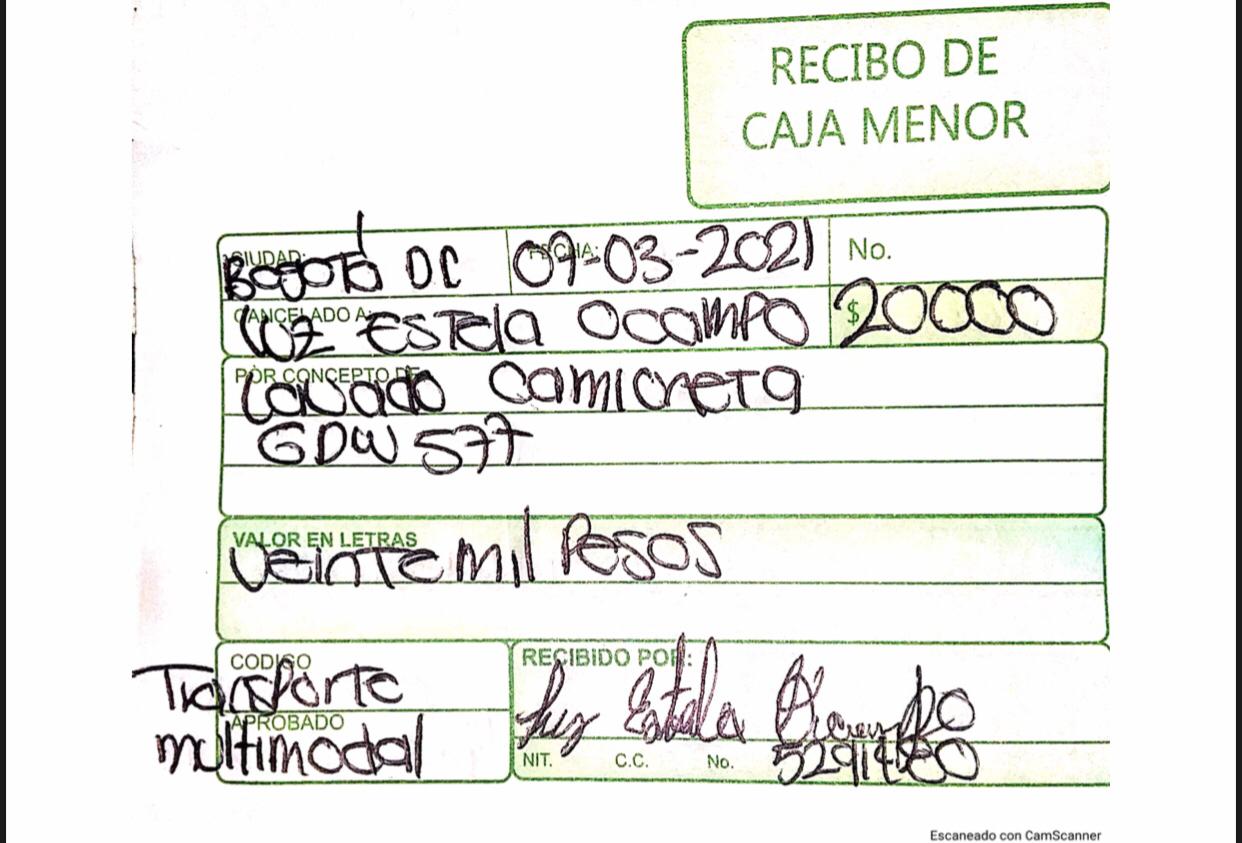 RECIBO DE
CAJA MENOR
CIUDAD: Bogotá D.C FECHA: 09-03-2021 No.
CANCELADO A: Luz Estela Ocampo $ 20000
POR CONCEPTO DE Lavado Camioneta
GDW 577
VALOR EN LETRAS
Veinte mil Pesos
CODIGO RECIBIDO POR:
Transporte Luz Estela Ocampo
APROBADO
multimodal NIT. C.C. No.
Escaneado con CamScanner